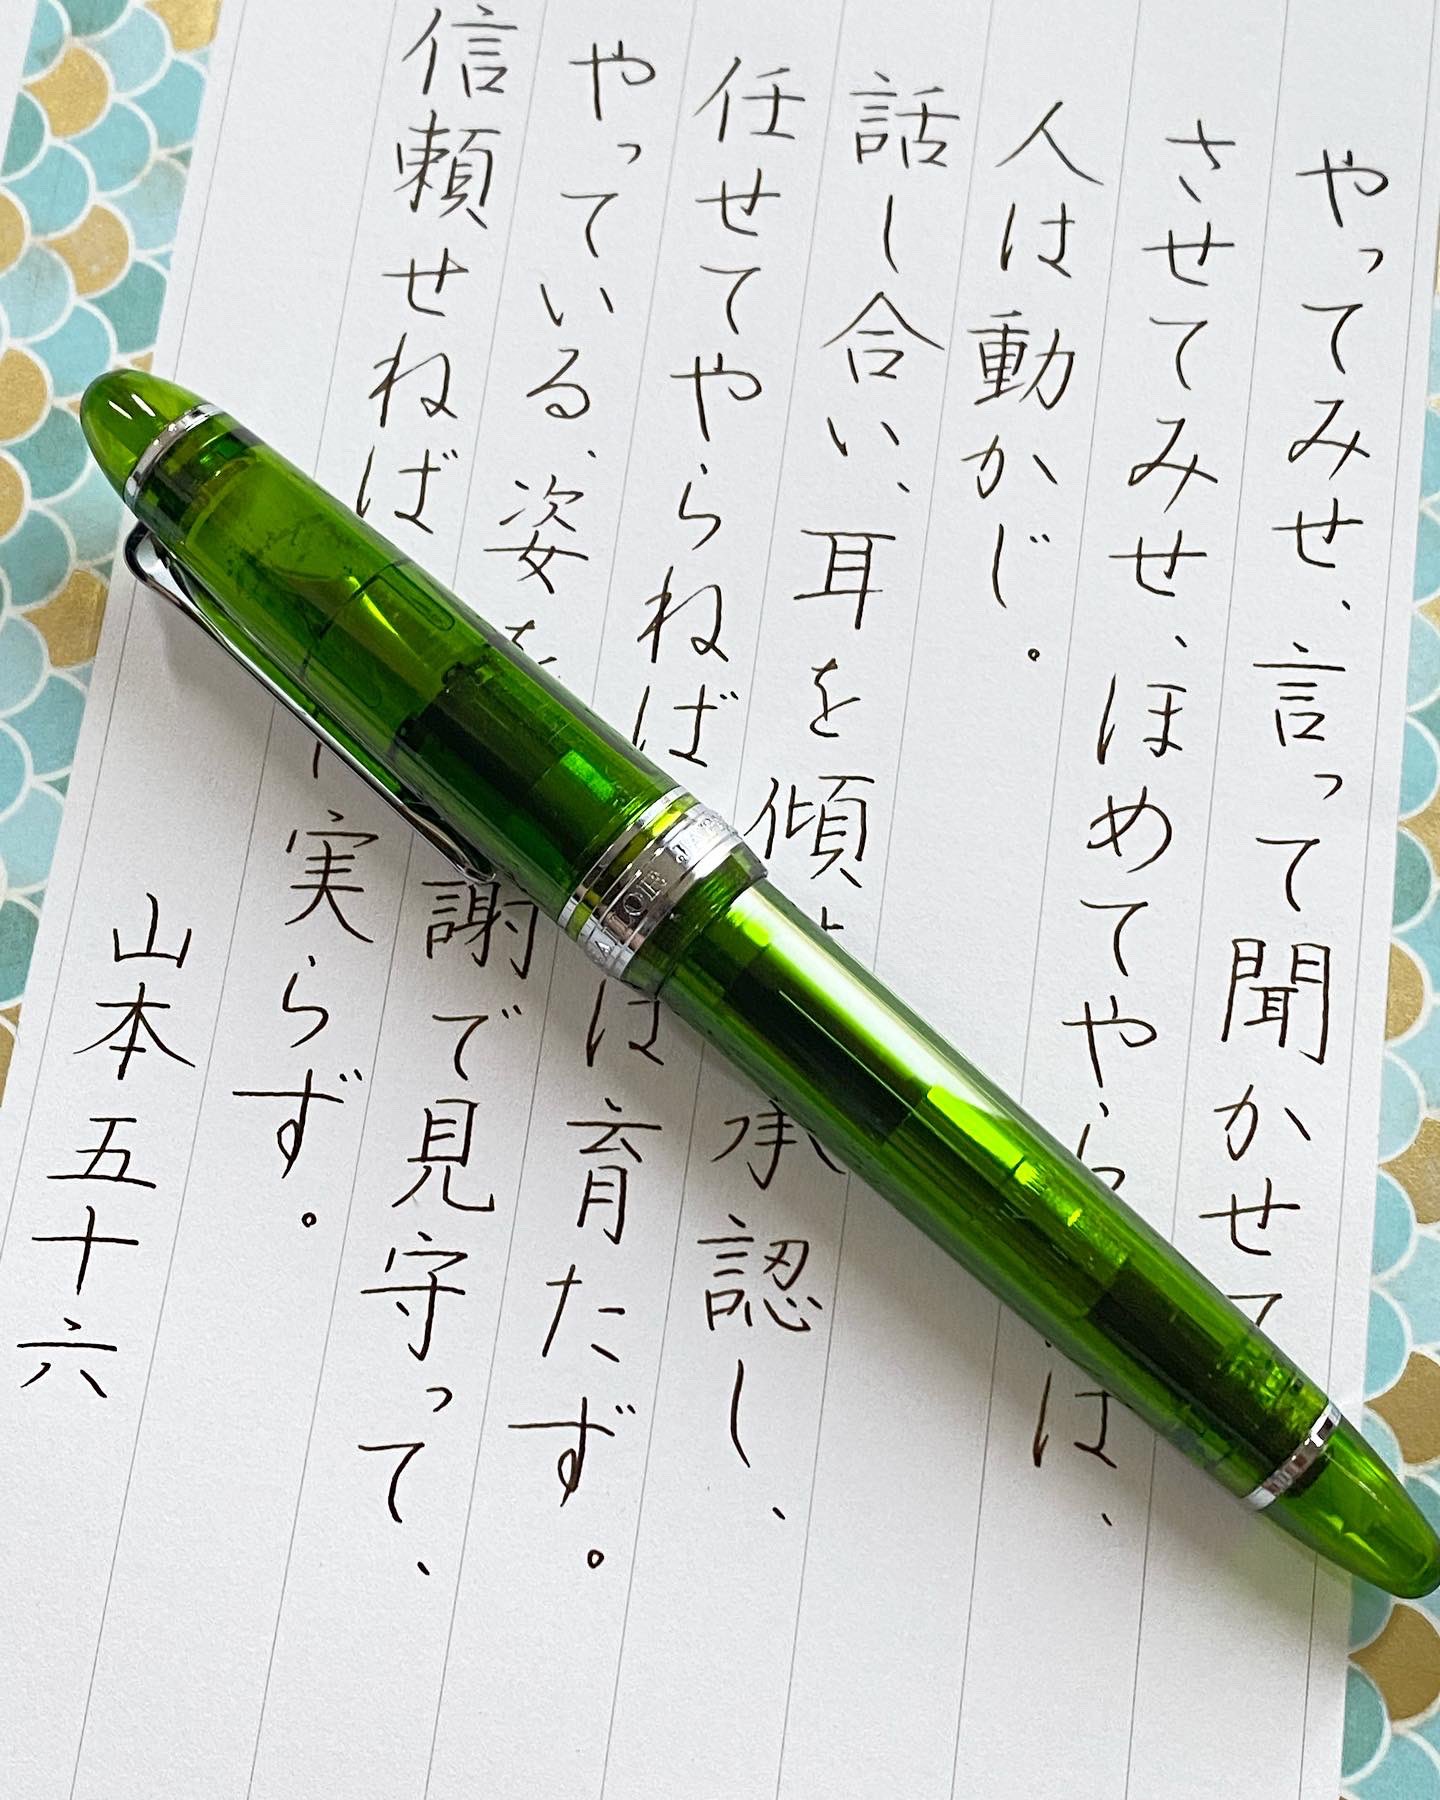 やってみせ、言って聞かせて
させてみせ、ほめてやらは、
人は動かじ。
話し合い、耳を傾承認し、
任せてやらねばは育たず。
やっている、姿を謝で見守って、
信頼せねば実らず。
山本五十六